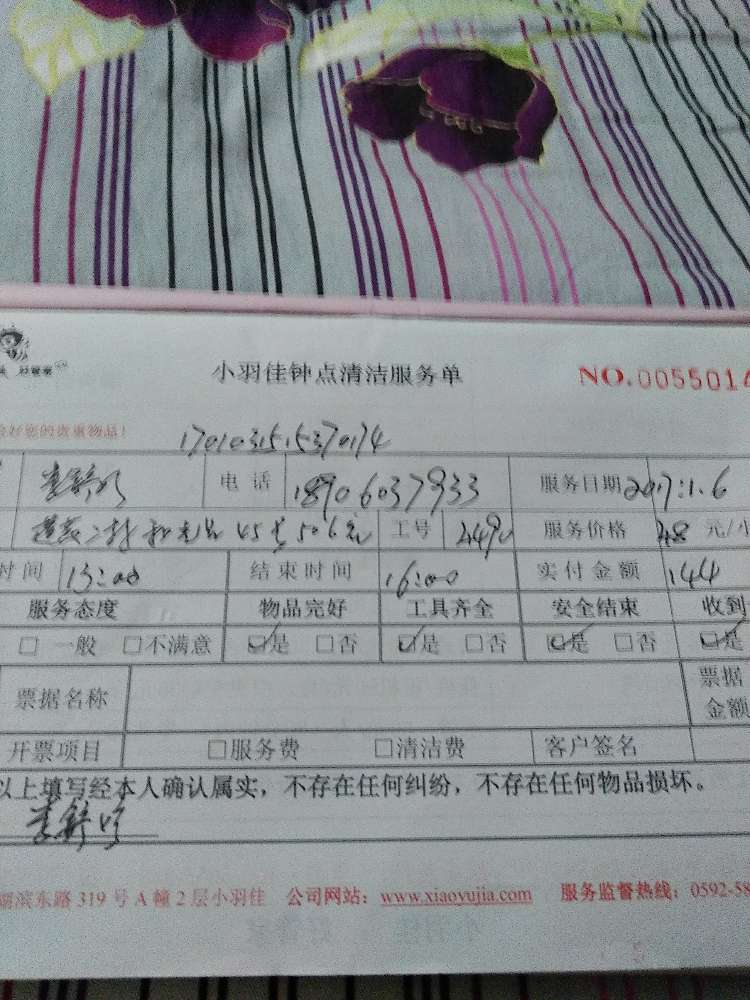 好管家
小羽佳钟点清洁服务单 NO.0055014
好您的贵重物品!
17010315,5370174
电话 18906037933 服务日期 2017:1.6
45 506 工号 2490 服务价格 48 元/小
时间 13:00 结束时间 16:00 实付金额 144
服务态度 物品完好 工具齐全 安全结束 收到
□ 一般 □不满意 ☑是 □否 ☑是 □否 ☑是 □否 ☑是
票据名称 票据金额
开票项目 □服务费 □清洁费 客户签名
以上填写经本人确认属实，不存在任何纠纷，不存在任何物品损坏。
湖滨东路 319 号 A 幢 2 层小羽佳 公司网站：www.xiaoyujia.com 服务监督热线：0592-58